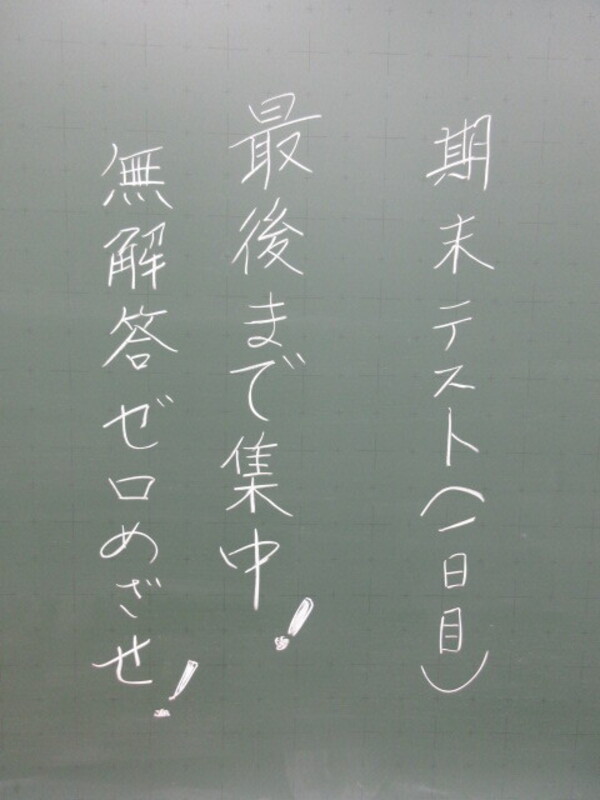 期末テスト(一日目)
最後まで集中!
無解答ゼロめざせ!